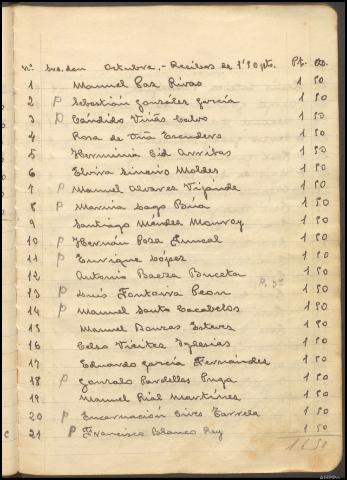 nº Sra. don Octubre.- Recibos de 1'50 pts. Pt. Cts.
1 Manuel Paz Rivas 1 50
2 p Sebastián González García 1 50
3 p Cándido Viñas Calvo 1 50
4 Rosa de Oña Escudero 1 50
5 Herminia Cid Arribas 1 50
6 Elvira Sineiro Moldes 1 50
7 p Manuel Alvarez 1 50
8 p Marina Lago 1 50
9 Santiago Méndez Monroy 1 50
10 p Hernán Poza Juncal 1 50
11 p Enrique López 1 50
12 Antonio Baeza Buceta 1 50
13 p Luis Fontoira Peon 1 50
14 p Manuel Santo Cacabelos 1 50
15 Manuel Bouzas Esteves 1 50
16 Celso Vieites Iglesias 1 50
17 Eduardo García Fernández 1 50
18 p Gonzalo Pardellas Puga 1 50
19 Manuel Rial Martínez 1 50
20 p Encarnación 1 50
21 p Francisco Blanco Rey 1 50